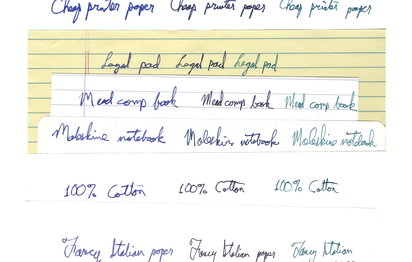 Cheap printer paper Cheap printer paper Cheap printer paper
Legal pad Legal pad Legal pad
Mead comp book Mead comp book Mead comp book
Moleskine notebook Moleskine notebook Moleskine notebook
100% Cotton 100% Cotton 100% Cotton
Fancy Italian paper Fancy Italian paper Fancy Italian